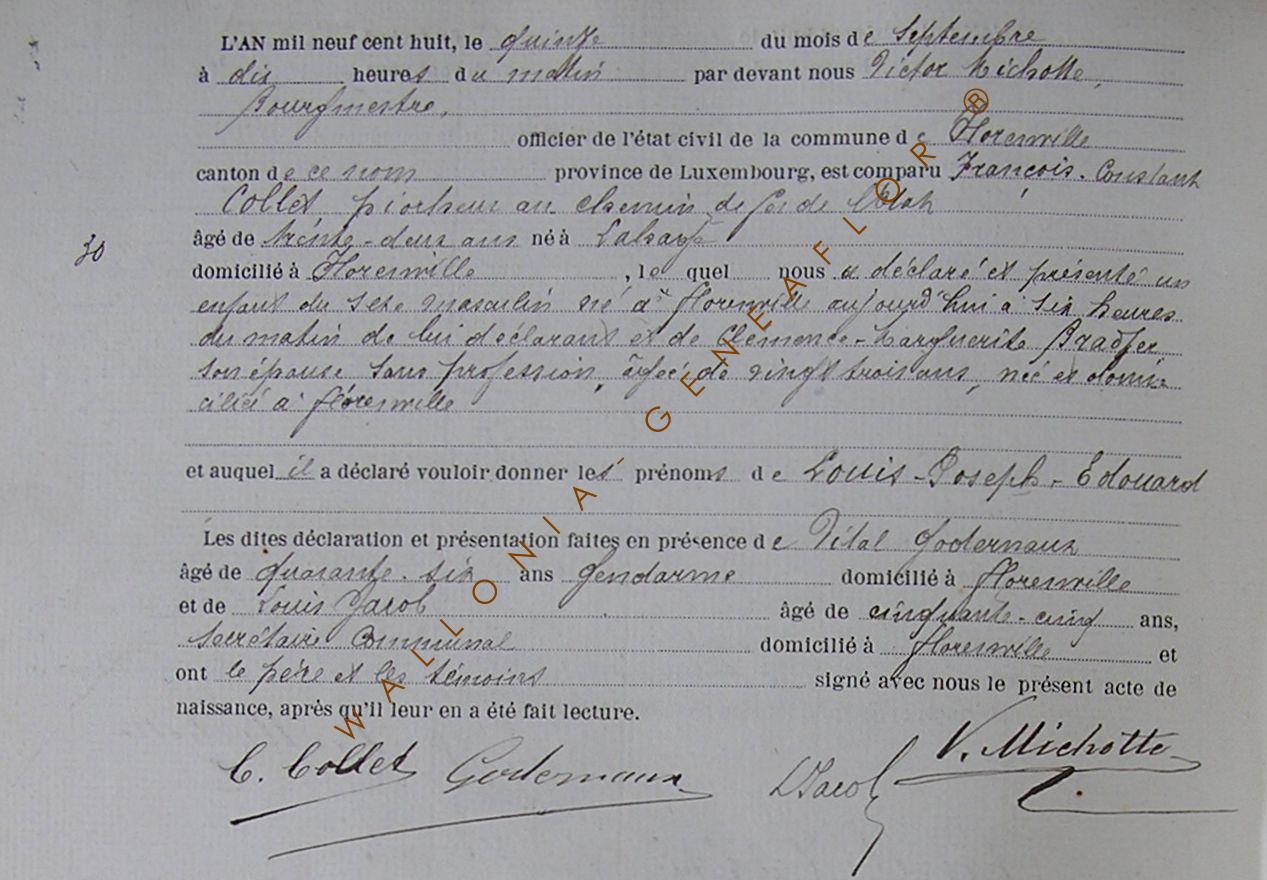 L'AN mil neuf cent huit, le quinze du mois de Septembre
à dix heures du matin par devant nous Victor Michotte,
Bourgmestre,
officier de l'état civil de la commune de Florenville
canton de ce nom province de Luxembourg, est comparu François-Constant
Collet, piocheur au chemin de fer de l'Etat
âgé de trente-deux ans né à
30
domicilié à Florenville, lequel nous a déclaré et présenté un
enfant du sexe masculin né à Florenville aujourd'hui à six heures
du matin de lui déclarant et de Clémence-Marguerite Bradfer
son épouse sans profession, âgée de vingt trois ans, née et domi
ciliée à Florenville
et auquel il a déclaré vouloir donner les prénoms de Louis-Joseph-Edouard
Les dites déclaration et présentation faites en présence de Vital Godernaux
âgé de quarante-six ans Gendarme domicilié à Florenville
et de Louis Jacob âgé de cinquante-cinq ans,
Secrétaire Communal domicilié à Florenville et
ont le père et les témoins signé avec nous le présent acte de
naissance, après qu'il leur en a été fait lecture.
C. Collet Godernaux LJacob V. Michotte
WALLONIA-GENEAFLOR®